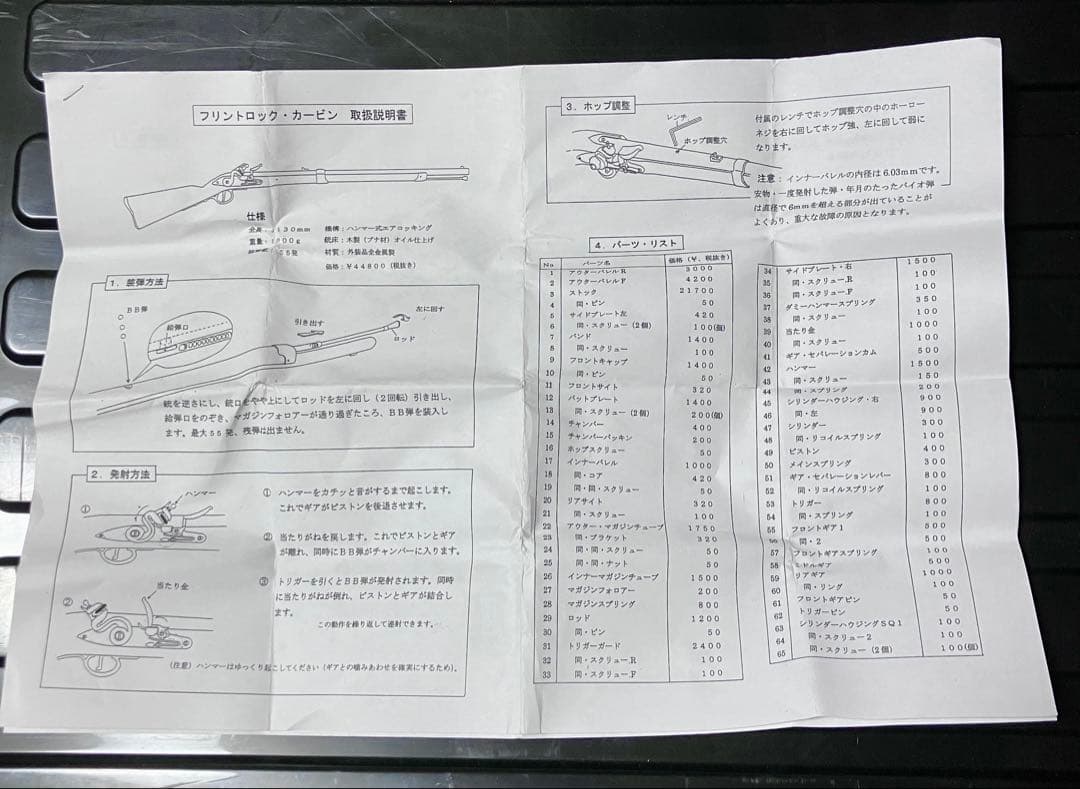 フリントロック・カービン 取扱説明書
仕様
130mm 機構：ハンマー式エアコッキング
重量： 00g 銃床：木製（ブナ材）オイル仕上げ
55発 材質：外装品全金属製
価格：￥44800（税抜き）
1．装弾方法
BB弾
給弾口
引き出す
左に回す
ロッド
銃を逆さにし、銃口をやや上にしてロッドを左に回し（2回転）引き出し、
給弾口をのぞき、マガジンフォロアーが通り過ぎたころ、BB弾を装入し
ます。最大55発、残弾は出ません。
2．発射方法
①
ハンマー
① ハンマーをカチッと音がするまで起こします。
これでギアがピストンを後退させます。
② 当たりがねを戻します。これでピストンとギア
が離れ、同時にBB弾がチャンバーに入ります。
②
当たり金
③ トリガーを引くとBB弾が発射されます。同時
に当たりがねが倒れ、ピストンとギアが結合し
ます。
この動作を繰り返して連射できます。
（注意）ハンマーはゆっくり起こしてください（ギアとの噛みあわせを確実にするため）。
3．ホップ調整
レンチ
ホップ調整穴
付属のレンチでホップ調整穴の中のホーロー
ネジを右に回してホップ強、左に回して弱に
なります。
注意：インナーバレルの内径は6.03mmです。
安物・一度発射した弾・年月のたったバイオ弾
は直径で6mmを超える部分が出ていることが
よくあり、重大な故障の原因となります。
4．パーツ・リスト
No パーツ名 価格（￥、税抜き）
1 アウターバレルR 3000
2 アウターバレルF 4200
3 ストック 21700
4 同・ピン 50
5 サイドプレート左 420
6 同・スクリュー（2個） 100(個)
7 バンド 1400
8 同・スクリュー 100
9 フロントキャップ 1400
10 同・ピン 50
11 フロントサイト 320
12 バットプレート 1400
13 同・スクリュー（2個） 200(個)
14 チャンバー 400
15 チャンバーパッキン 200
16 ホップスクリュー 50
17 インナーバレル 1000
18 同・コア 420
19 同・同・スクリュー 50
20 リアサイト 320
21 同・スクリュー 100
22 アウター・マガジンチューブ 1750
23 同・ブラケット 320
24 同・同・スクリュー 50
25 同・同・ナット 50
26 インナーマガジンチューブ 1500
27 マガジンフォロアー 200
28 マガジンスプリング 800
29 ロッド 1200
30 同・ピン 50
31 トリガーガード 2400
32 同・スクリュー.R 100
33 同・スクリュー.F 100
34 サイドプレート・右 1500
35 同・スクリュー.R 100
36 同・スクリュー.F 100
37 ダミーハンマースプリング 350
38 同・スクリュー 100
39 当たり金 1000
40 同・スクリュー 100
41 ギア・セパレーションカム 500
42 ハンマー 1500
43 同・スクリュー 150
44 同・スプリング 200
45 シリンダーハウジング・右 900
46 同・左 900
47 シリンダー 300
48 同・リコイルスプリング 100
49 ピストン 400
50 メインスプリング 300
51 ギア・セパレーションレバー 800
52 同・リコイルスプリング 100
53 トリガー 800
54 同・スプリング 100
55 フロントギア1 500
56 同・2 500
57 フロントギアスプリング 100
58 ミドルギア 500
59 リアギア 1000
60 同・リング 100
61 フロントギアピン 50
62 トリガーピン 50
63 シリンダーハウジングSQ1 100
64 同・スクリュー2 100
65 同・スクリュー（2個） 100(個)